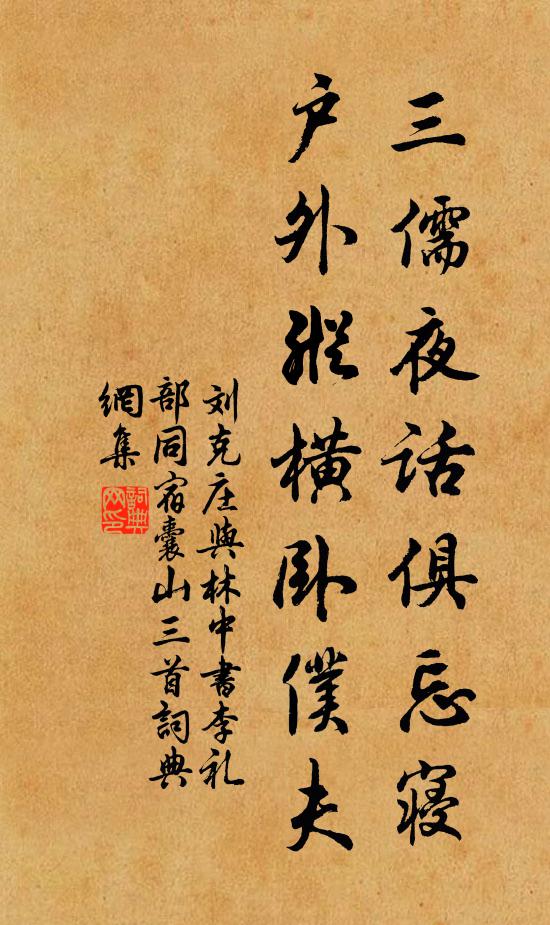 三儒夜话俱忘寝
户外縱橫卧僕夫
刘克庄與林中書李礼
部同宿囊山三首詞典
網集
詞典
网印